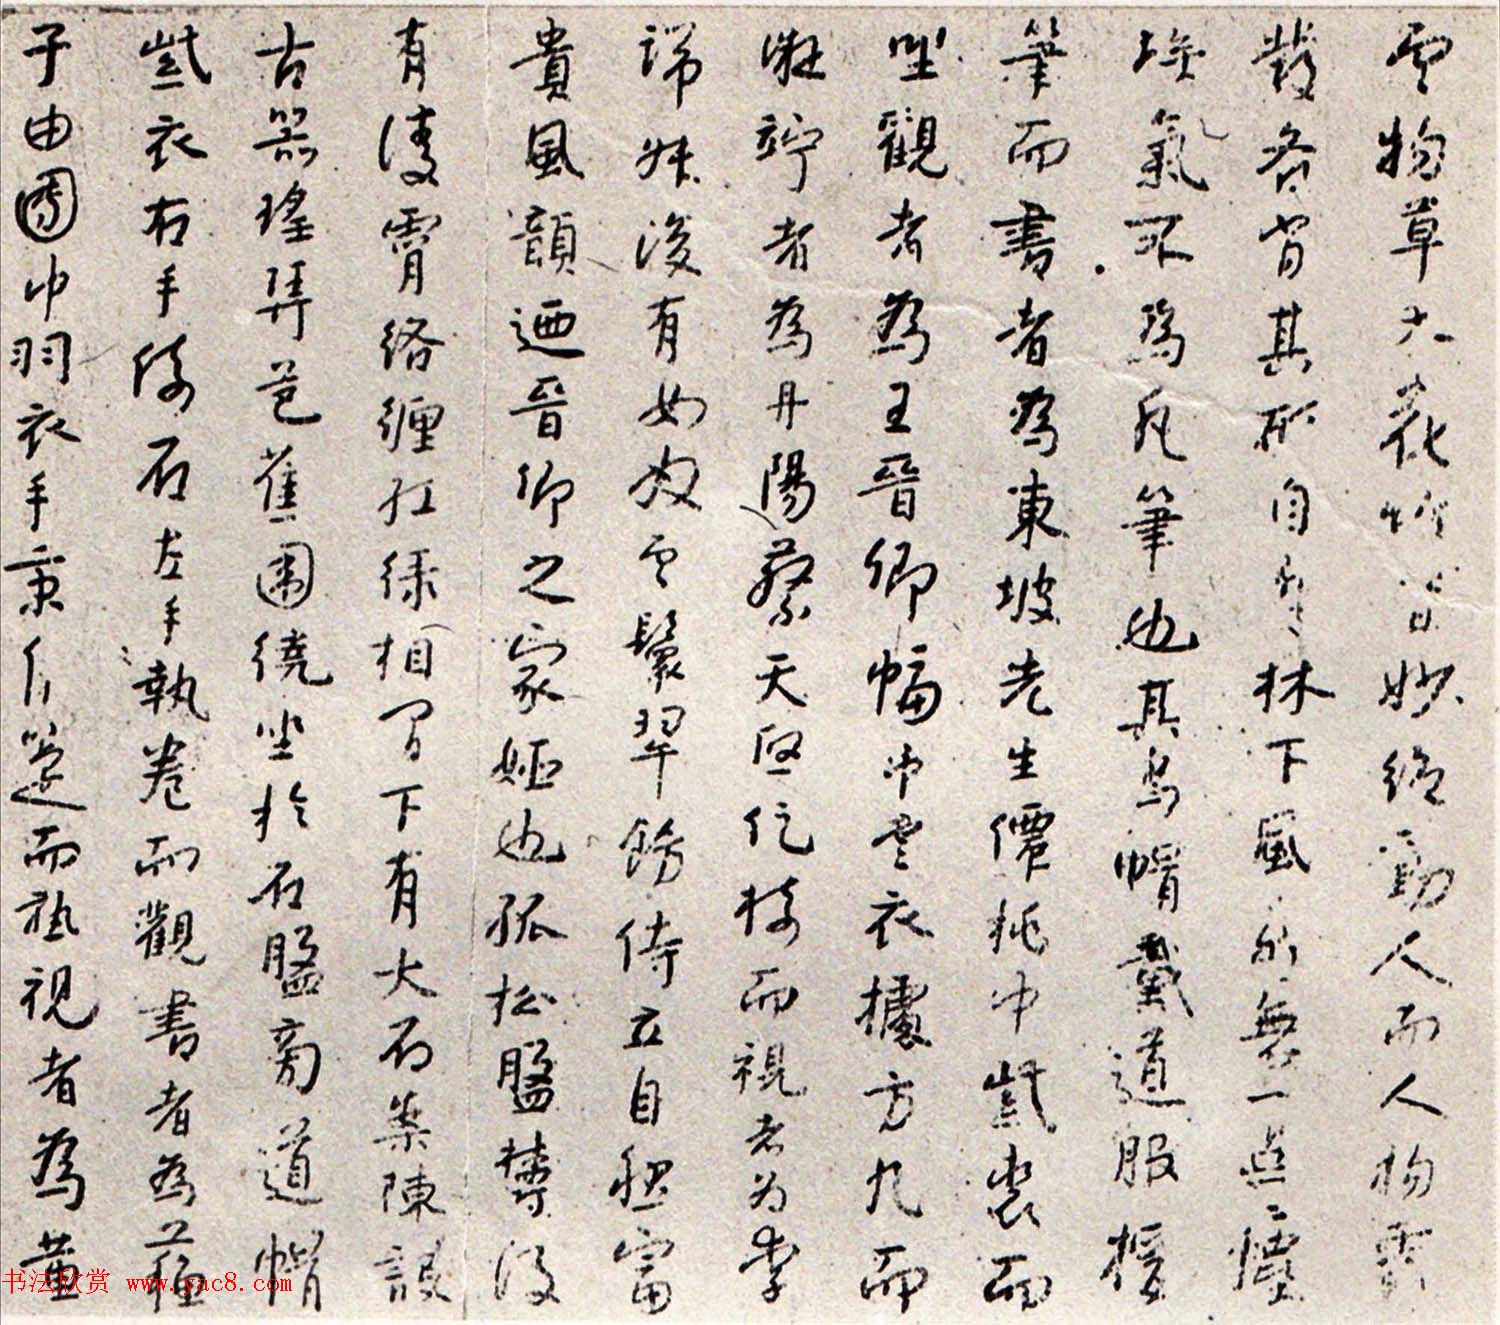 雲物草木花竹皆妙絕動人而人物秀
發各肖其形自有林下風味無一點塵
埃氣不為凡筆也其烏帽戴道服握
筆而書者為東坡先生僊桃巾紫裘而
坐觀者為王晉卿幅巾青衣據方几而
凝竚者為丹陽蔡天啟捉椅而視者为李
端叔後有女奴雲鬟翠飾侍立自然富
貴風韻迺晉卿之家姬也孤松盤鬱後
有凌霄絡纏紅綠相間下有大石案陳設
古器瑤琴芭蕉圍繞坐於石盤旁道帽
紫衣右手倚石左手執卷而觀書者為蘇
子由團巾羽衣手秉蕉箑而熟視者為黃
书法欣赏 www.yac8.com